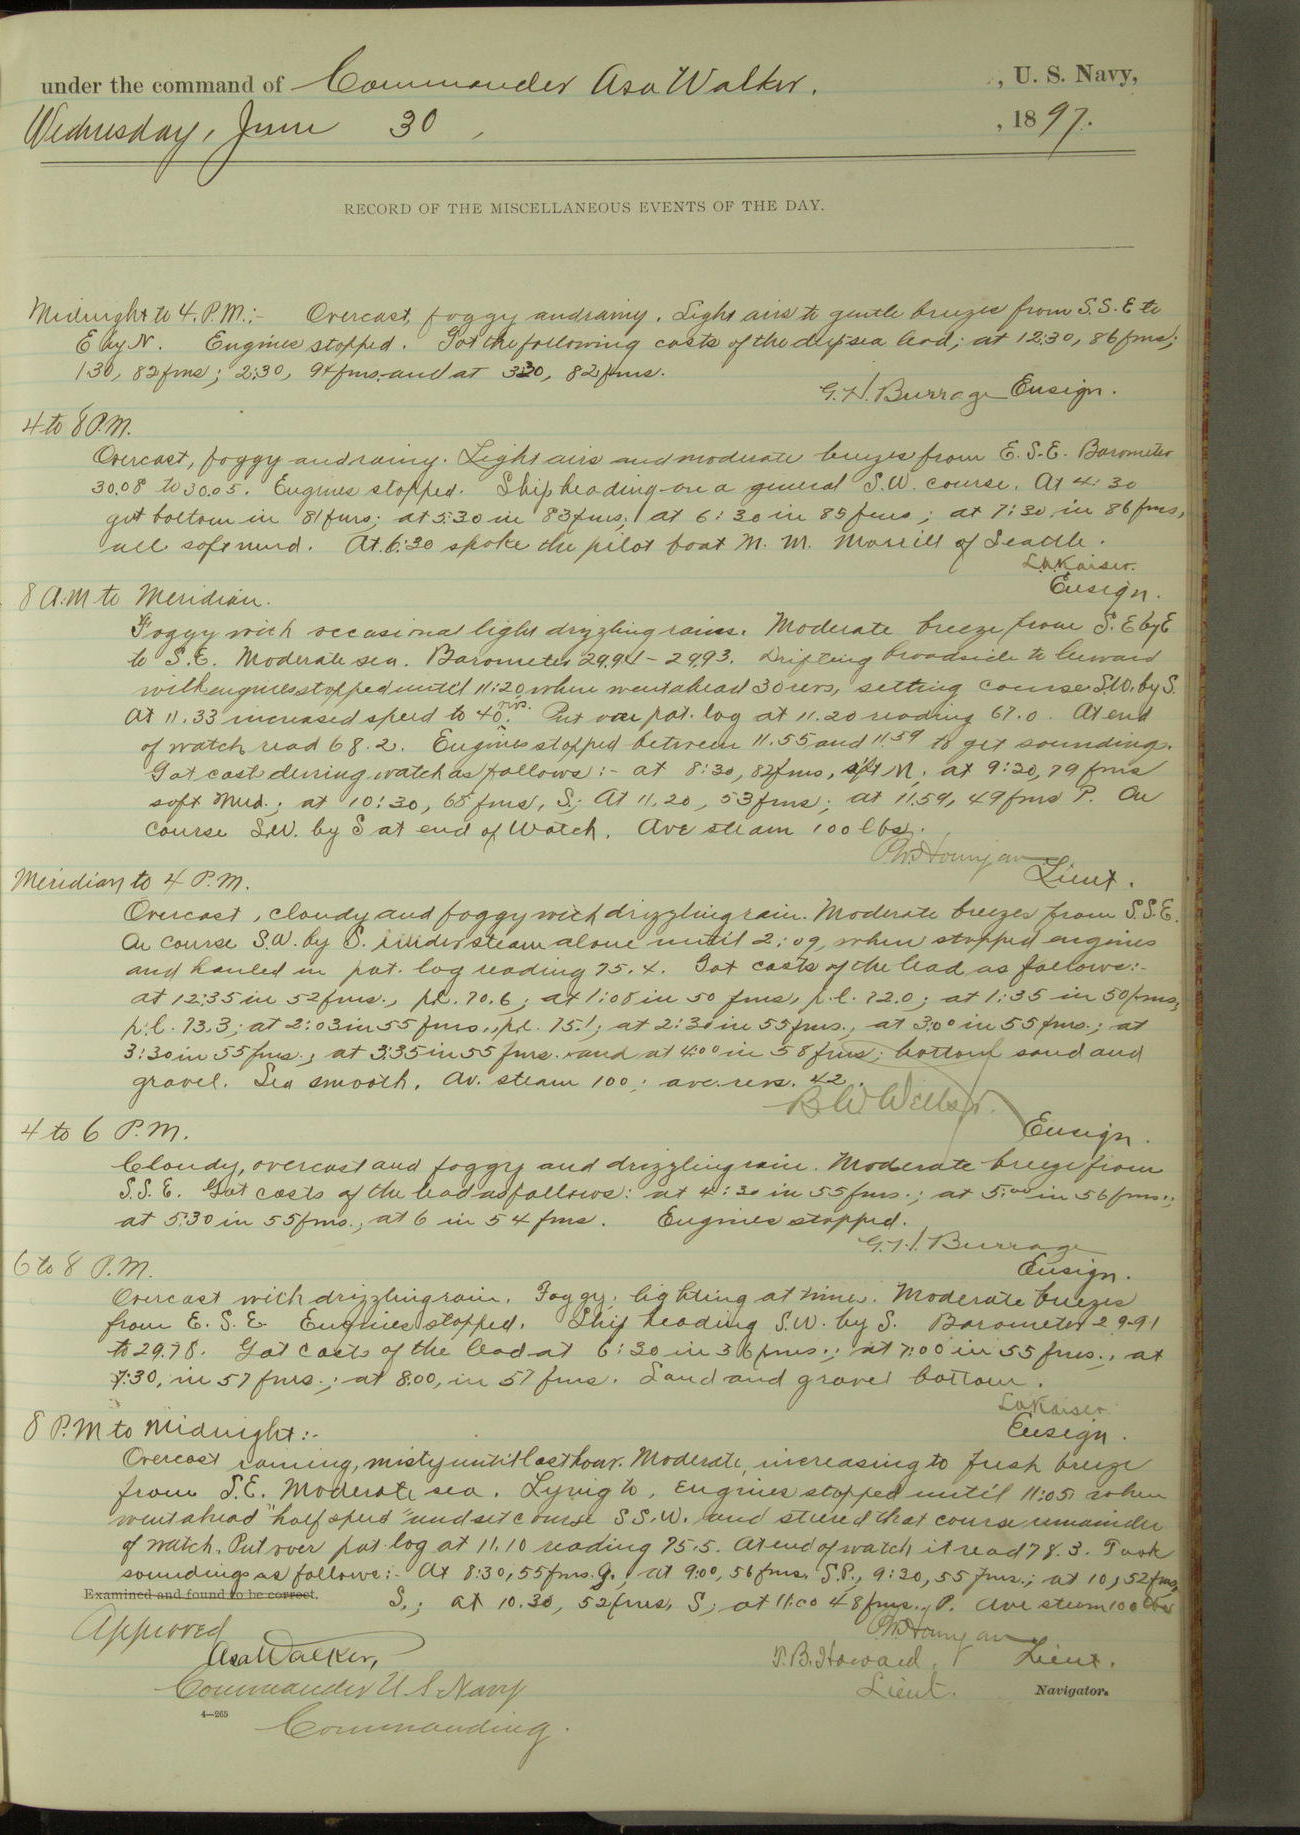 under the command of Commander Asa Walker. , U. S. Navy,
Wednesday, June 30 , , 1897.
RECORD OF THE MISCELLANEOUS EVENTS OF THE DAY.
Midnight to 4. P.M.:- Overcast, foggy and rainy. Light airs to gentle breezes from S.S.E to
E by N. Engines stopped. Got the following casts of the deep sea lead; at 12:30, 86 fms;
1:30, 82 fms; 2:30, 94 fms. and at 3:30, 82 fms.
G.H. Burrage Ensign.
4 to 8 P.M.
Overcast, foggy and rainy. Light airs and moderate breezes from E.S.E. Barometer
30.08 to 30.05. Engines stopped. Ship heading on a general S.W. course. At 4:30
got bottom in 81 fms; at 5:30 in 83 fms; at 6:30 in 85 fms; at 7:30 in 86 fms,
all soft mud. At 6:30 spoke the pilot boat M. M. Morrill of Seattle.
L.A. Kaiser.
Ensign.
8 A.M to Meridian.
Foggy with occasional light drizzling rains. Moderate breeze from S.E by E
to S.E. Moderate sea. Barometer 29.94 - 29.93. Drifting broadside to leeward
with engines stopped until 11:20 when went ahead 30 revs, setting course S.W. by S.
At 11.33 increased speed to 40 revs. Put over pat. log at 11.20 reading 67.0. At end
of watch read 68.2. Engines stopped between 11.55 and 11.59 to get sounding.
Got cast during watch as follows:- at 8:30, 82 fms, sft M; at 9:20, 79 fms
soft Mud.; at 10:30, 65 fms, S; At 11.20, 53 fms; at 11.59, 49 fms P. On
course S.W. by S at end of Watch. Ave steam 100 lbs.
Lieut.
Meridian to 4 P.M.
Overcast, cloudy and foggy with drizzling rain. Moderate breezes from S.S.E.
On course S.W. by S. under steam alone until 2:09, when stopped engines
and hauled in pat. log reading 75.4. Got casts of the lead as follows:-
at 12:35 in 52 fms., p.l. 70.6; at 1:05 in 50 fms, p.l. 72.0; at 1:35 in 50 fms,
p.l. 73.3; at 2:03 in 55 fms., p.l. 75.1; at 2:30 in 55 fms., at 3:00 in 55 fms.; at
3:30 in 55 fms.; at 3:35 in 55 fms. and at 4:00 in 58 fms; bottom sand and
gravel. Sea smooth. Av. steam 100; ave. revs. 42.
B.W. Wells Jr.
Ensign.
4 to 6 P.M.
Cloudy, overcast and foggy and drizzling rain. Moderate breeze from
S.S.E. Got casts of the lead as follows: at 4:30 in 55 fms.; at 5:00 in 56 fms.;
at 5:30 in 55 fms., at 6 in 54 fms. Engines stopped.
G.H. Burrage
Ensign.
6 to 8 P.M.
Overcast with drizzling rain. Foggy, lighting at times. Moderate breezes
from E.S.E Engines stopped. Ship heading S.W. by S. Barometer 29.91
to 29.78. Got casts of the lead at 6:30 in 36 fms.; at 7:00 in 55 fms., at
7:30, in 57 fms.; at 8:00, in 57 fms. Sand and gravel bottom.
L.A. Kaiser
Ensign.
8 P.M to Midnight:-
Overcast raining, misty until last hour. Moderate, increasing to fresh breeze
from S.E. Moderate sea. Lying to, engines stopped until 11:05 when
went ahead "half speed" and set course S S.W. and steered that course remainder
of watch. Put over pat. log at 11.10 reading 75.5. At end of watch it read 78.3. Took
soundings as follows:- At 8:30, 55 fms. G., at 9:00, 56 fms. S.P., 9:30, 55 fms.; at 10, 52 fms,
Examined and found to be correct.
S.; at 10.30, 52 fms, S; at 11:00 48 fms., P. Ave steam 100 lbs
Approved
Asa Walker, T.B. Howard, Lieut.
Commander U S Navy Lieut. Navigator.
4—265
Commanding.